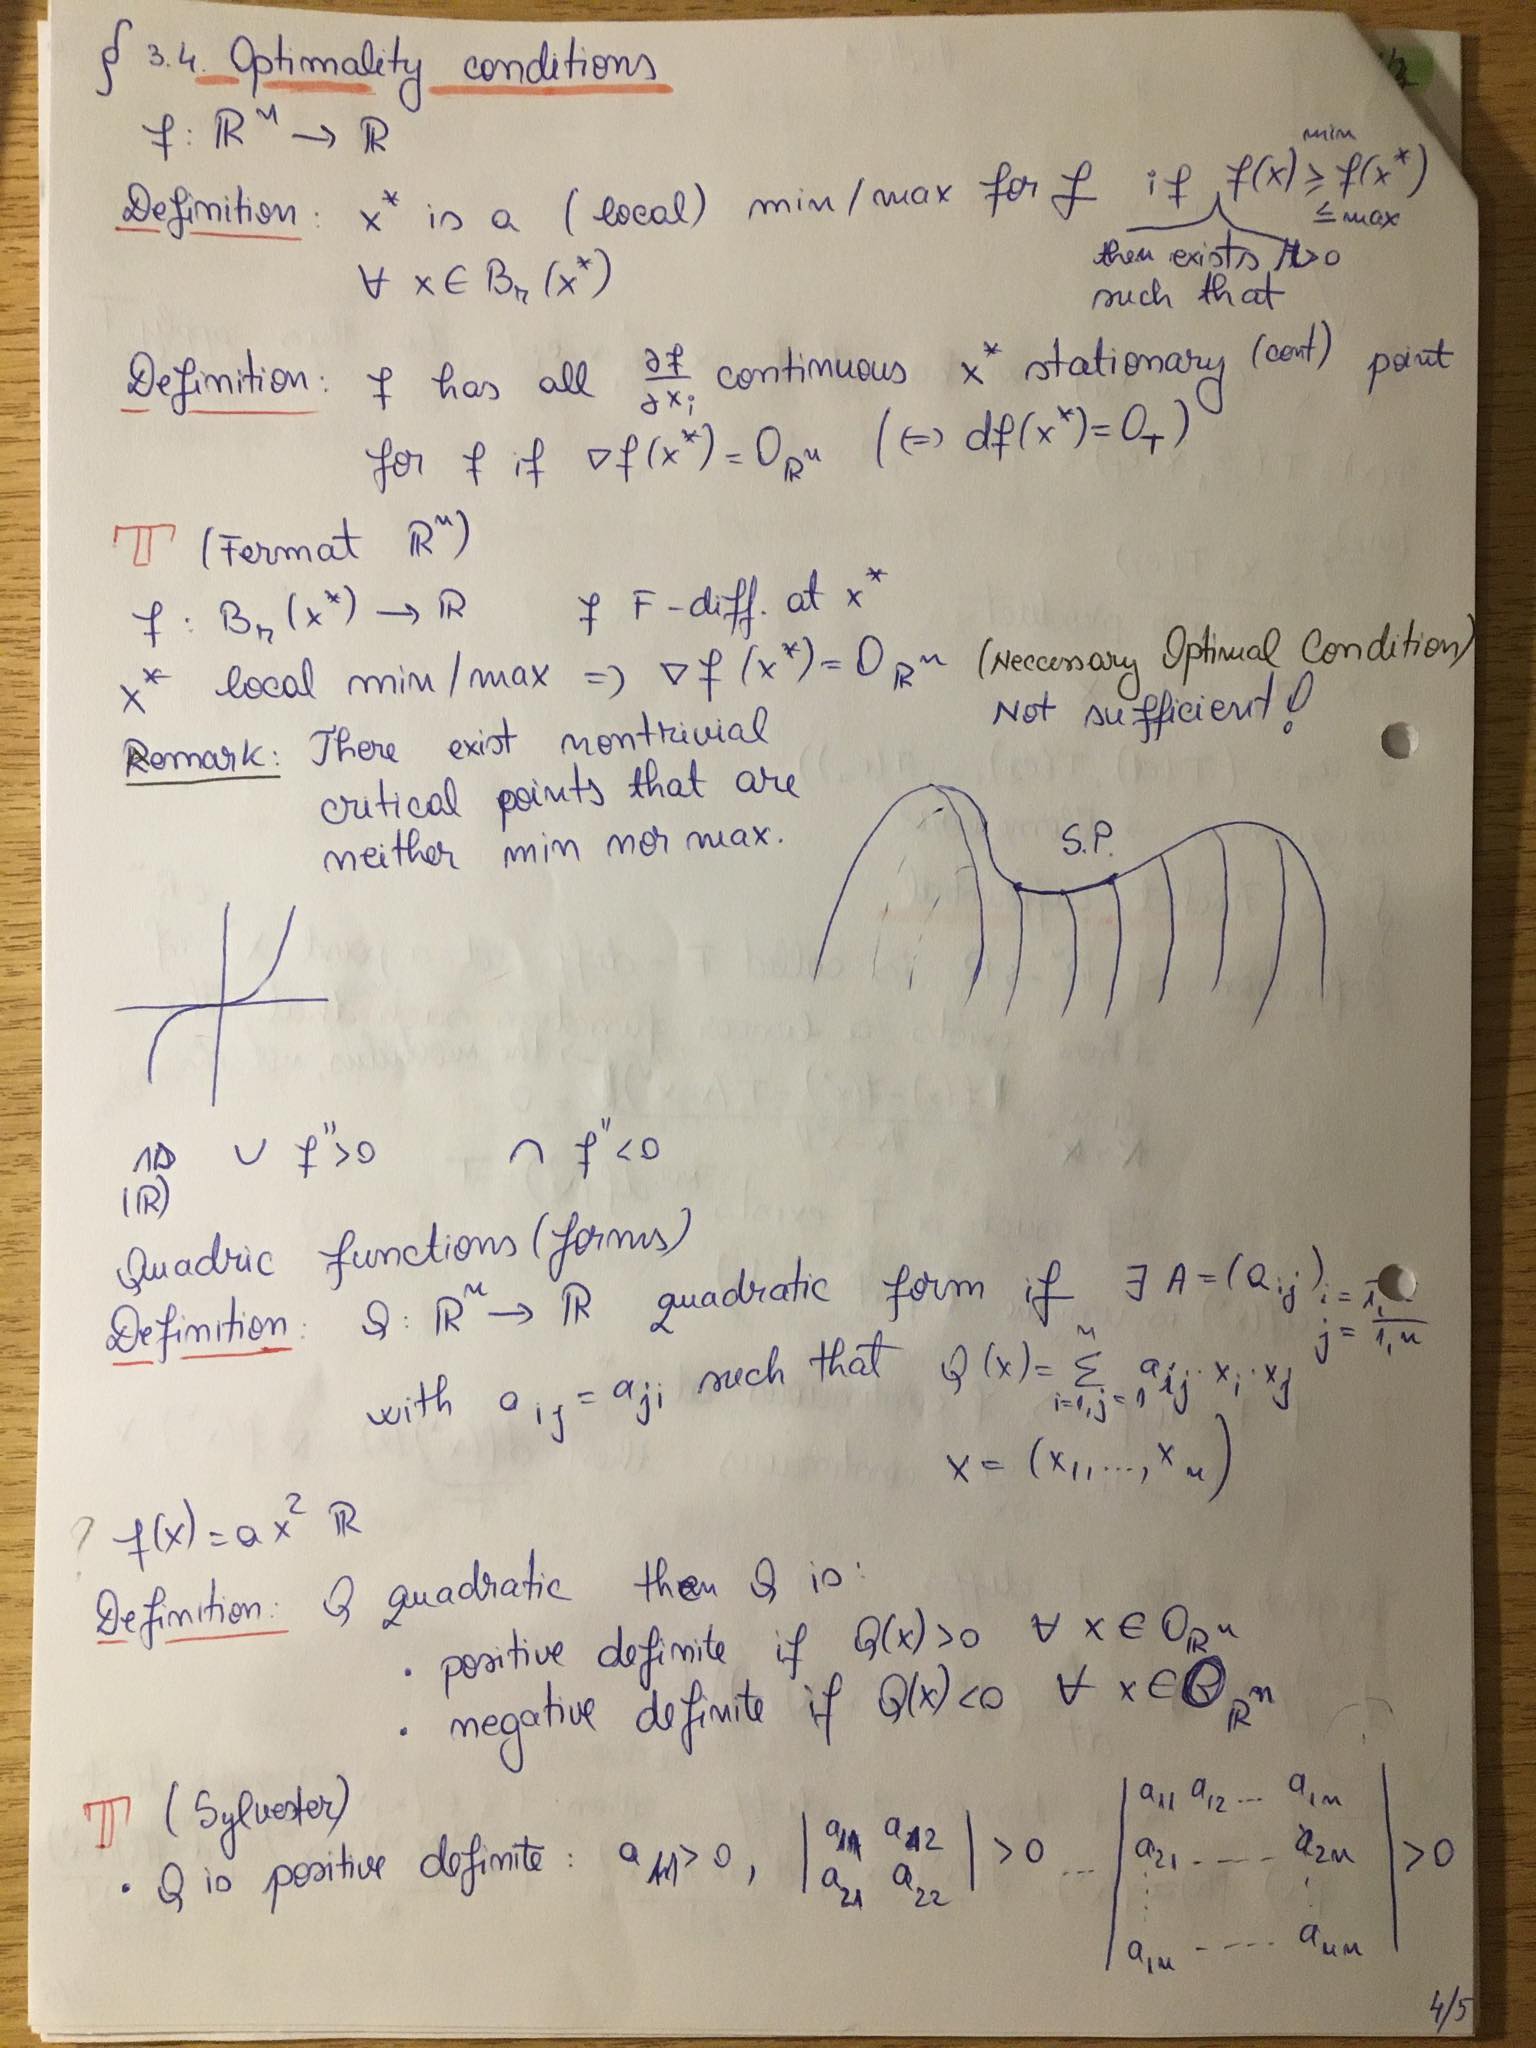 § 3.4. Optimality conditions
f : ℝⁿ → ℝ
Definition: x* is a (local) min/max for f if f(x) ≥ f(x*)
min
≤ max
then exists r>0
such that
∀ x ∈ Bᵣ(x*)
Definition: f has all ∂f/∂xᵢ continuous x* stationary (cont) point
for f if ∇f(x*) = 0_ℝⁿ (⇔ df(x*) = 0_T)
T (Fermat ℝⁿ)
f : Bᵣ(x*) → ℝ f F-diff. at x*
x* local min/max ⇒ ∇f(x*) = 0_ℝⁿ (Neccessary Optimal Condition)
Not sufficient!
Remark: There exist nontrivial
critical points that are
neither min nor max.
S.P.
1D ∪ f''>0 ∩ f''<0
(ℝ)
Quadric functions (forms)
Definition: Q : ℝⁿ → ℝ quadratic form if ∃ A = (a_ij) i = 1,
j = 1,n
with a_ij = a_ji such that Q(x) = Σ_{i=1,j=1}^n a_ij · x_i · x_j
x = (x₁, ..., xₙ)
? f(x) = ax² ℝ
Definition: Q quadratic then Q is:
· positive definite if Q(x) > 0 ∀ x ∈ 0_ℝⁿ
· negative definite if Q(x) < 0 ∀ x ∈ 0_ℝⁿ
T (Sylvester)
· Q is positive definite: a₁₁ > 0, |a₁₁ a₁₂ a₂₁ a₂₂| > 0 ... |a₁₁ a₁₂ ... a₁ₙ a₂₁ ---- a₂ₙ ⋮ ⋮ a₁ₙ ---- aₙₙ| > 0
4/5